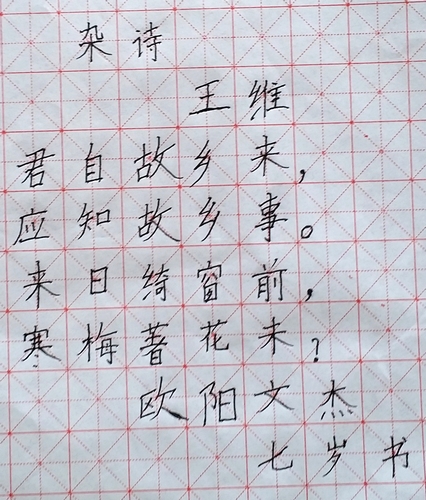 杂诗
王维
君自故乡来，
应知故乡事。
来日绮窗前，
寒梅著花未？
欧阳文杰
七岁书